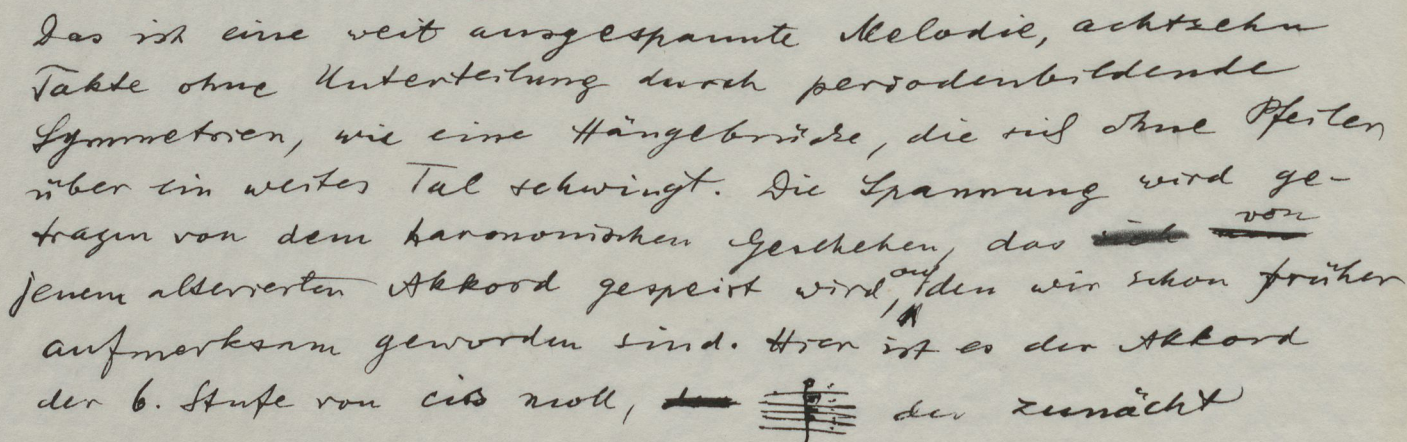 Das ist eine weit ausgespannte Melodie, achtzehn
Takte ohne Unterteilung durch periodenbildende
Symmetrien, wie eine Hängebrücke, die sich ohne Pfeiler
über ein weites Tal schwingt. Die Spannung wird ge-
tragen von dem harmonischen Geschehen, das von
jenem alterierten Akkord gespeist wird, auf den wir schon früher
aufmerksam geworden sind. Hier ist es der Akkord
der 6. Stufe von cis moll, der zunächt